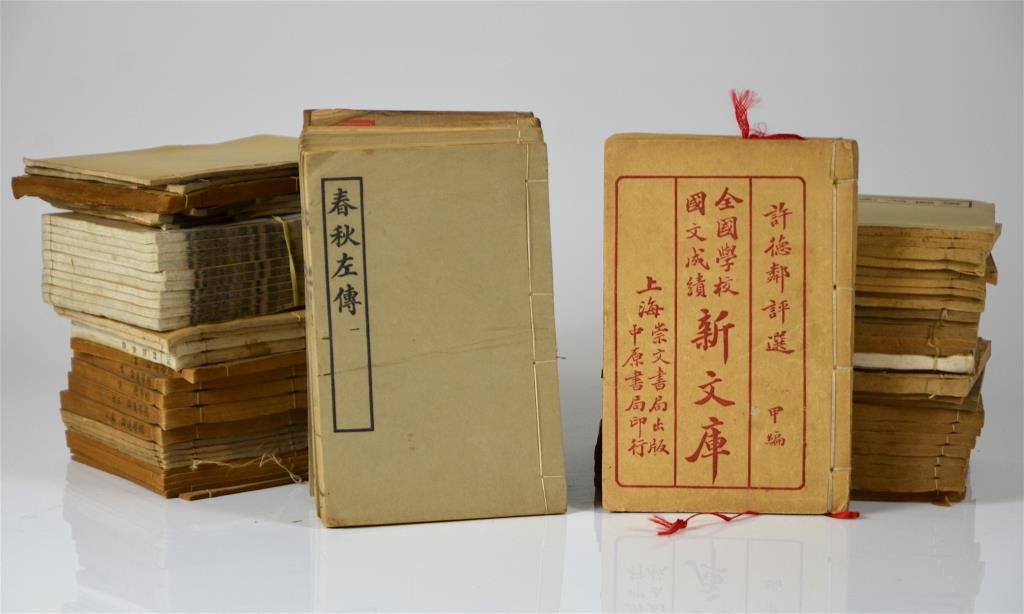 春秋左傳 一
許德鄰評選 甲編
全國學校
國文成績
新文庫
上海
崇文書局出版
中原書局印行